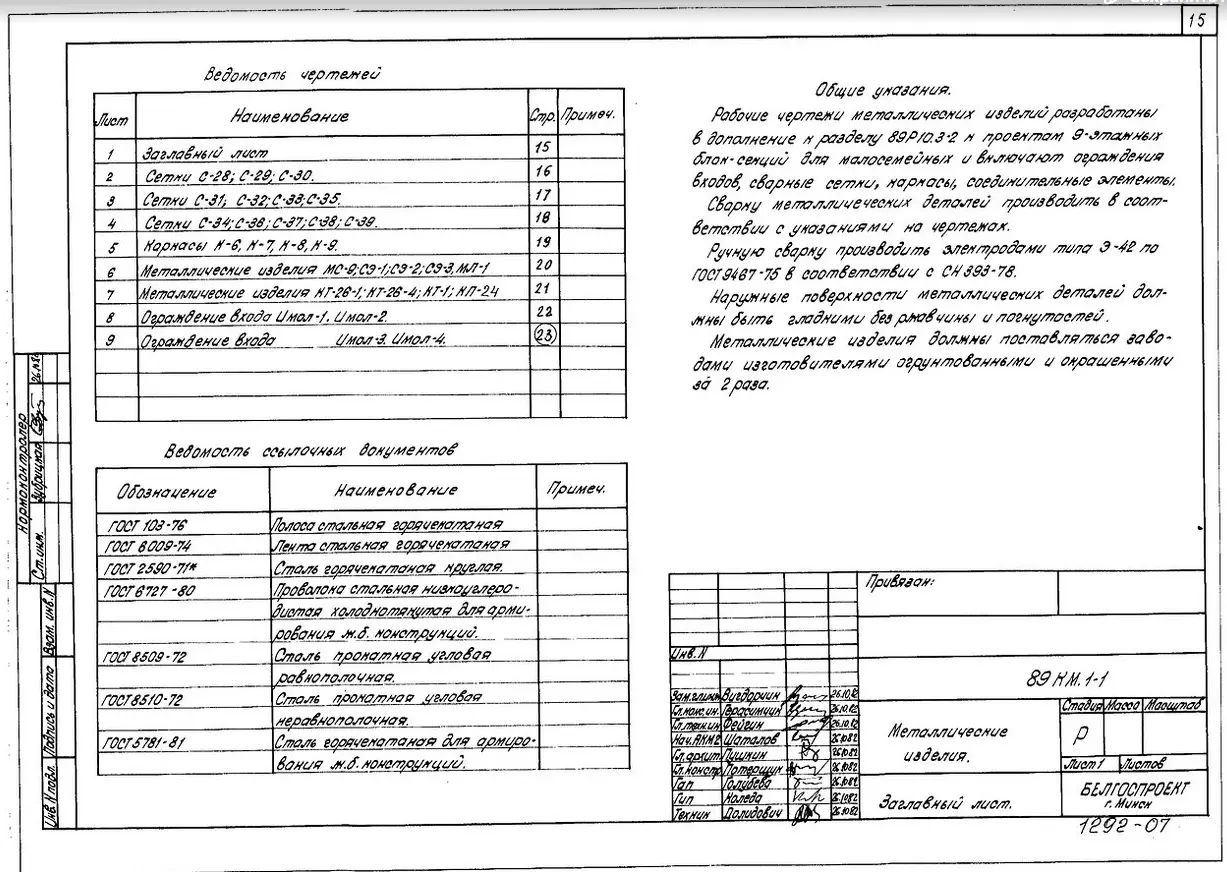 15
Ведомость чертежей
Лист Наименование Стр. Примеч.
1 Заглавный лист 15
2 Сетки С-28; С-29; С-30. 16
3 Сетки С-31; С-32; С-33; С-35. 17
4 Сетки С-34; С-36; С-37; С-38; С-39. 18
5 Каркасы К-6, К-7, К-8, К-9. 19
6 Металлические изделия МС-9; СЭ-1; СЭ-2; СЭ-3, МЛ-1 20
7 Металлические изделия КТ-26-1; КТ-26-4; КТ-1; КП-24 21
8 Ограждение входа Имол-1. Имол-2. 22
9 Ограждение входа Имол-3. Имол-4. 23
Ведомость ссылочных документов
Обозначение Наименование Примеч.
ГОСТ 103-76 Полоса стальная горячекатаная
ГОСТ 6009-74 Лента стальная горячекатаная
ГОСТ 2590-71* Сталь горячекатаная круглая.
ГОСТ 6727-80 Проволока стальная низкоуглеро-
дистая холоднотянутая для арми-
рования ж.б. конструкций.
ГОСТ 8509-72 Сталь прокатная угловая
равнополочная.
ГОСТ 8510-72 Сталь прокатная угловая
неравнополочная.
ГОСТ 5781-81 Сталь горячекатаная для армиро-
вания ж.б. конструкций.
Общие указания.
Рабочие чертежи металлических изделий разработаны
в дополнение к разделу 89Р10.3-2 к проектам 9-этажных
блок-секций для малосемейных и включают ограждения
входов, сварные сетки, каркасы, соединительные элементы.
Сварку металличеческих деталей производить в соот-
ветствии с указаниями на чертежах.
Ручную сварку производить электродами типа Э-42 по
ГОСТ 9467-75 в соответствии с СН 393-78.
Наружные поверхности металлических деталей дол-
жны быть гладкими без ржавчины и погнутостей.
Металлические изделия должны поставляться заво-
дами изготовителями огрунтованными и окрашенными
за 2 раза.
Нормоконтролер
Ст. инж. Зубрицкая
Взам. инв. N
Подпись и дата
Инв. N подл.
Инв. N
Привязан:
89 КМ.1-1
Вигдорчик 26.10.82
Герасимчик 26.10.82
Фейгин 26.10.82
Шаталов 26.10.82
Гл. архит. Пушкин 26.10.82
Гл. констр. Потерщук 26.10.82
Гап Голубева 26.10.82
Гип Коледа 26.10.82
Техник Долидович 26.10.82
Металлические
изделия.
Стадия Масса Масштаб
Р
Лист 1 Листов
Заглавный лист.
БЕЛГОСПРОЕКТ
г. Минск
1292-07